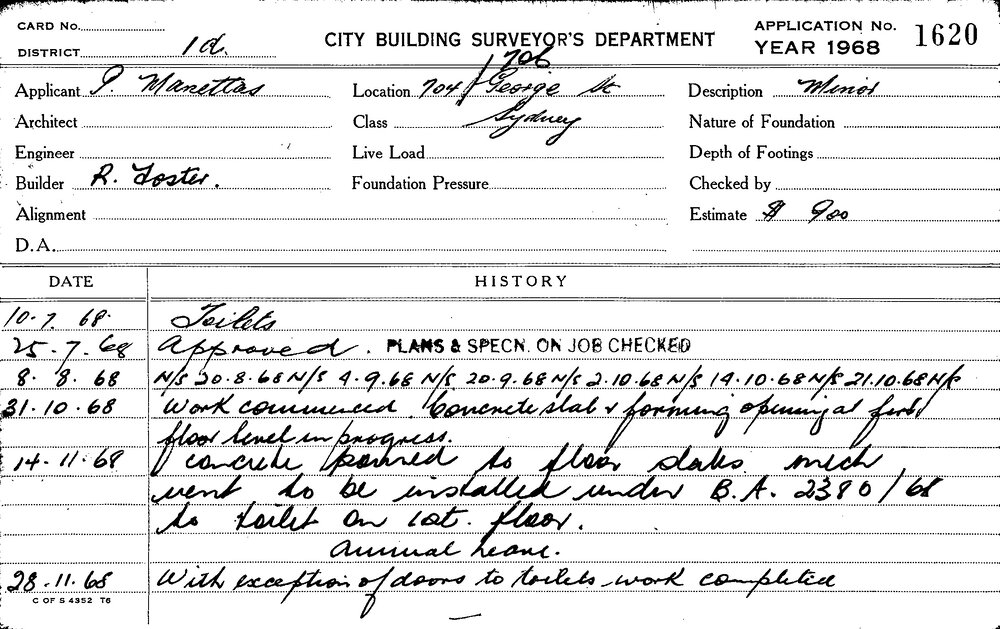 CARD No.
DISTRICT 1d.
CITY BUILDING SURVEYOR'S DEPARTMENT
APPLICATION No. 1620
YEAR 1968
Applicant P. Manettas
Location 704/706 George St Sydney
Description Minor
Architect
Class
Nature of Foundation
Engineer
Live Load
Depth of Footings
Builder R. Foster.
Foundation Pressure
Checked by
Alignment
Estimate $ 900
D.A.
DATE HISTORY
10.7.68. Toilets
25.7.68 Approved. PLANS & SPECN. ON JOB CHECKED
8.8.68 N/S 20.8.68 N/S 4.9.68 N/S 20.9.68 N/S 2.10.68 N/S 14.10.68 N/S 21.10.68 N/S
31.10.68 Work commenced. Concrete slab & forming opening at first
floor level in progress.
14.11.68 Concrete poured to floor slabs mech
vent to be installed under B.A. 2380/68
to toilet on 1st. floor.
Annual Leave.
28.11.68 With exception of doors to toilets work completed
C OF S 4352 T6